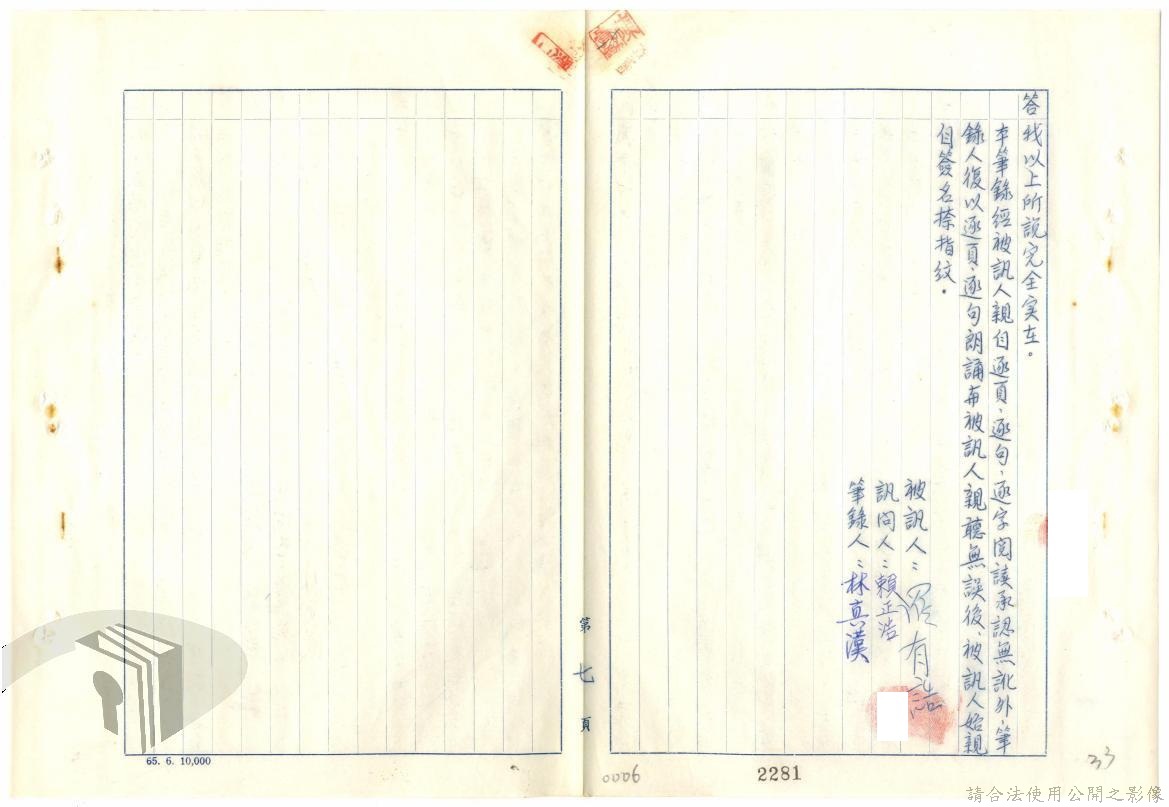 答 我以上所說完全实在。
本筆錄經被訊人親自逐頁、逐句、逐字閱讀承認無訛外、筆
錄人復以逐頁、逐句朗誦再被訊人親聽無誤後、被訊人始親
自簽名捺指紋。
被訊人：羅有
訊问人：賴正浩
筆錄人：林真漢
第七頁
65. 6. 10,000
0006
2281
33
請合法使用公開之影像